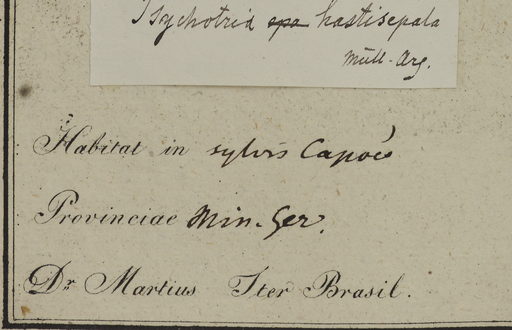 Psychotria spa hastisepala
Müll. Arg.
Habitat in sylvis Capoës
Provinciae Min. Ger.
Dr Martius Iter Brasil.